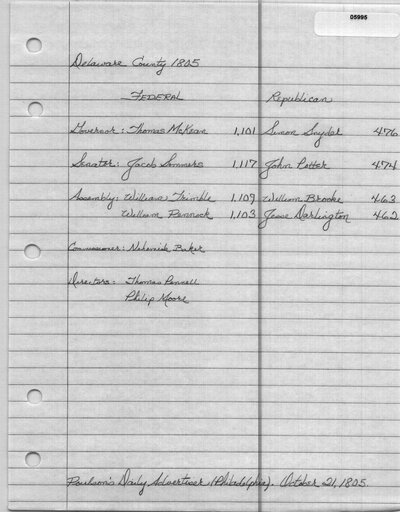 05995
Delaware County 1805
FEDERAL Republican
Governor: Thomas McKean 1,101 Simon Snyder 476
Senator: Jacob Sommers 1,117 John Potter 474
Assembly: William Trimble 1,109 William Brooke 463
William Pennock 1,103 Jesse Darlington 462
Commissioner: Nehemiah Baker
Directors: Thomas Pennell
Philip Moore
Poulson's Daily Advertiser (Philadelphia). October 21, 1805.